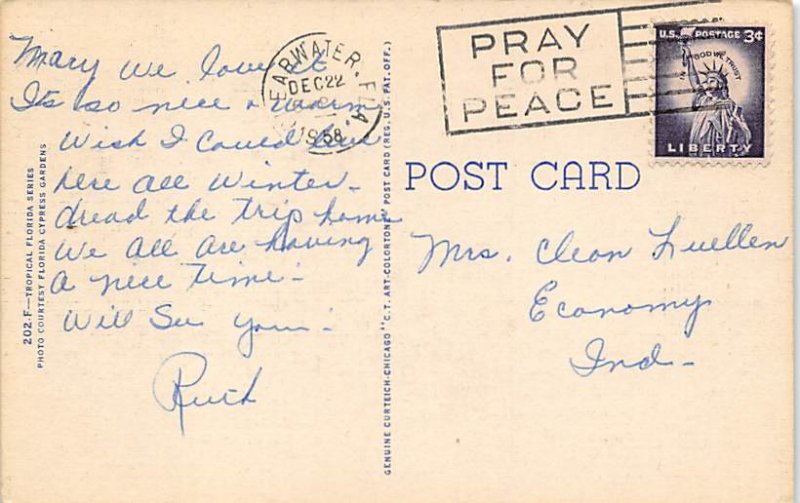 Mary we love it
Its so nice & warm
Wish I could
here all winter -
dread the trip home
We all are having
a nice time -
Will See you -
Ruth
202-F—TROPICAL FLORIDA SERIES
PHOTO COURTESY FLORIDA CYPRESS GARDENS
GENUINE CURTEICH-CHICAGO "C.T. ART-COLORTONE" POST CARD (REG. U.S. PAT. OFF.)
EARWATER, FLA.
DEC 22
1958
PRAY
FOR
PEACE
U.S. POSTAGE 3¢
IN GOD WE TRUST
LIBERTY
POST CARD
Mrs. Cleon Luellen
Economy
Ind -